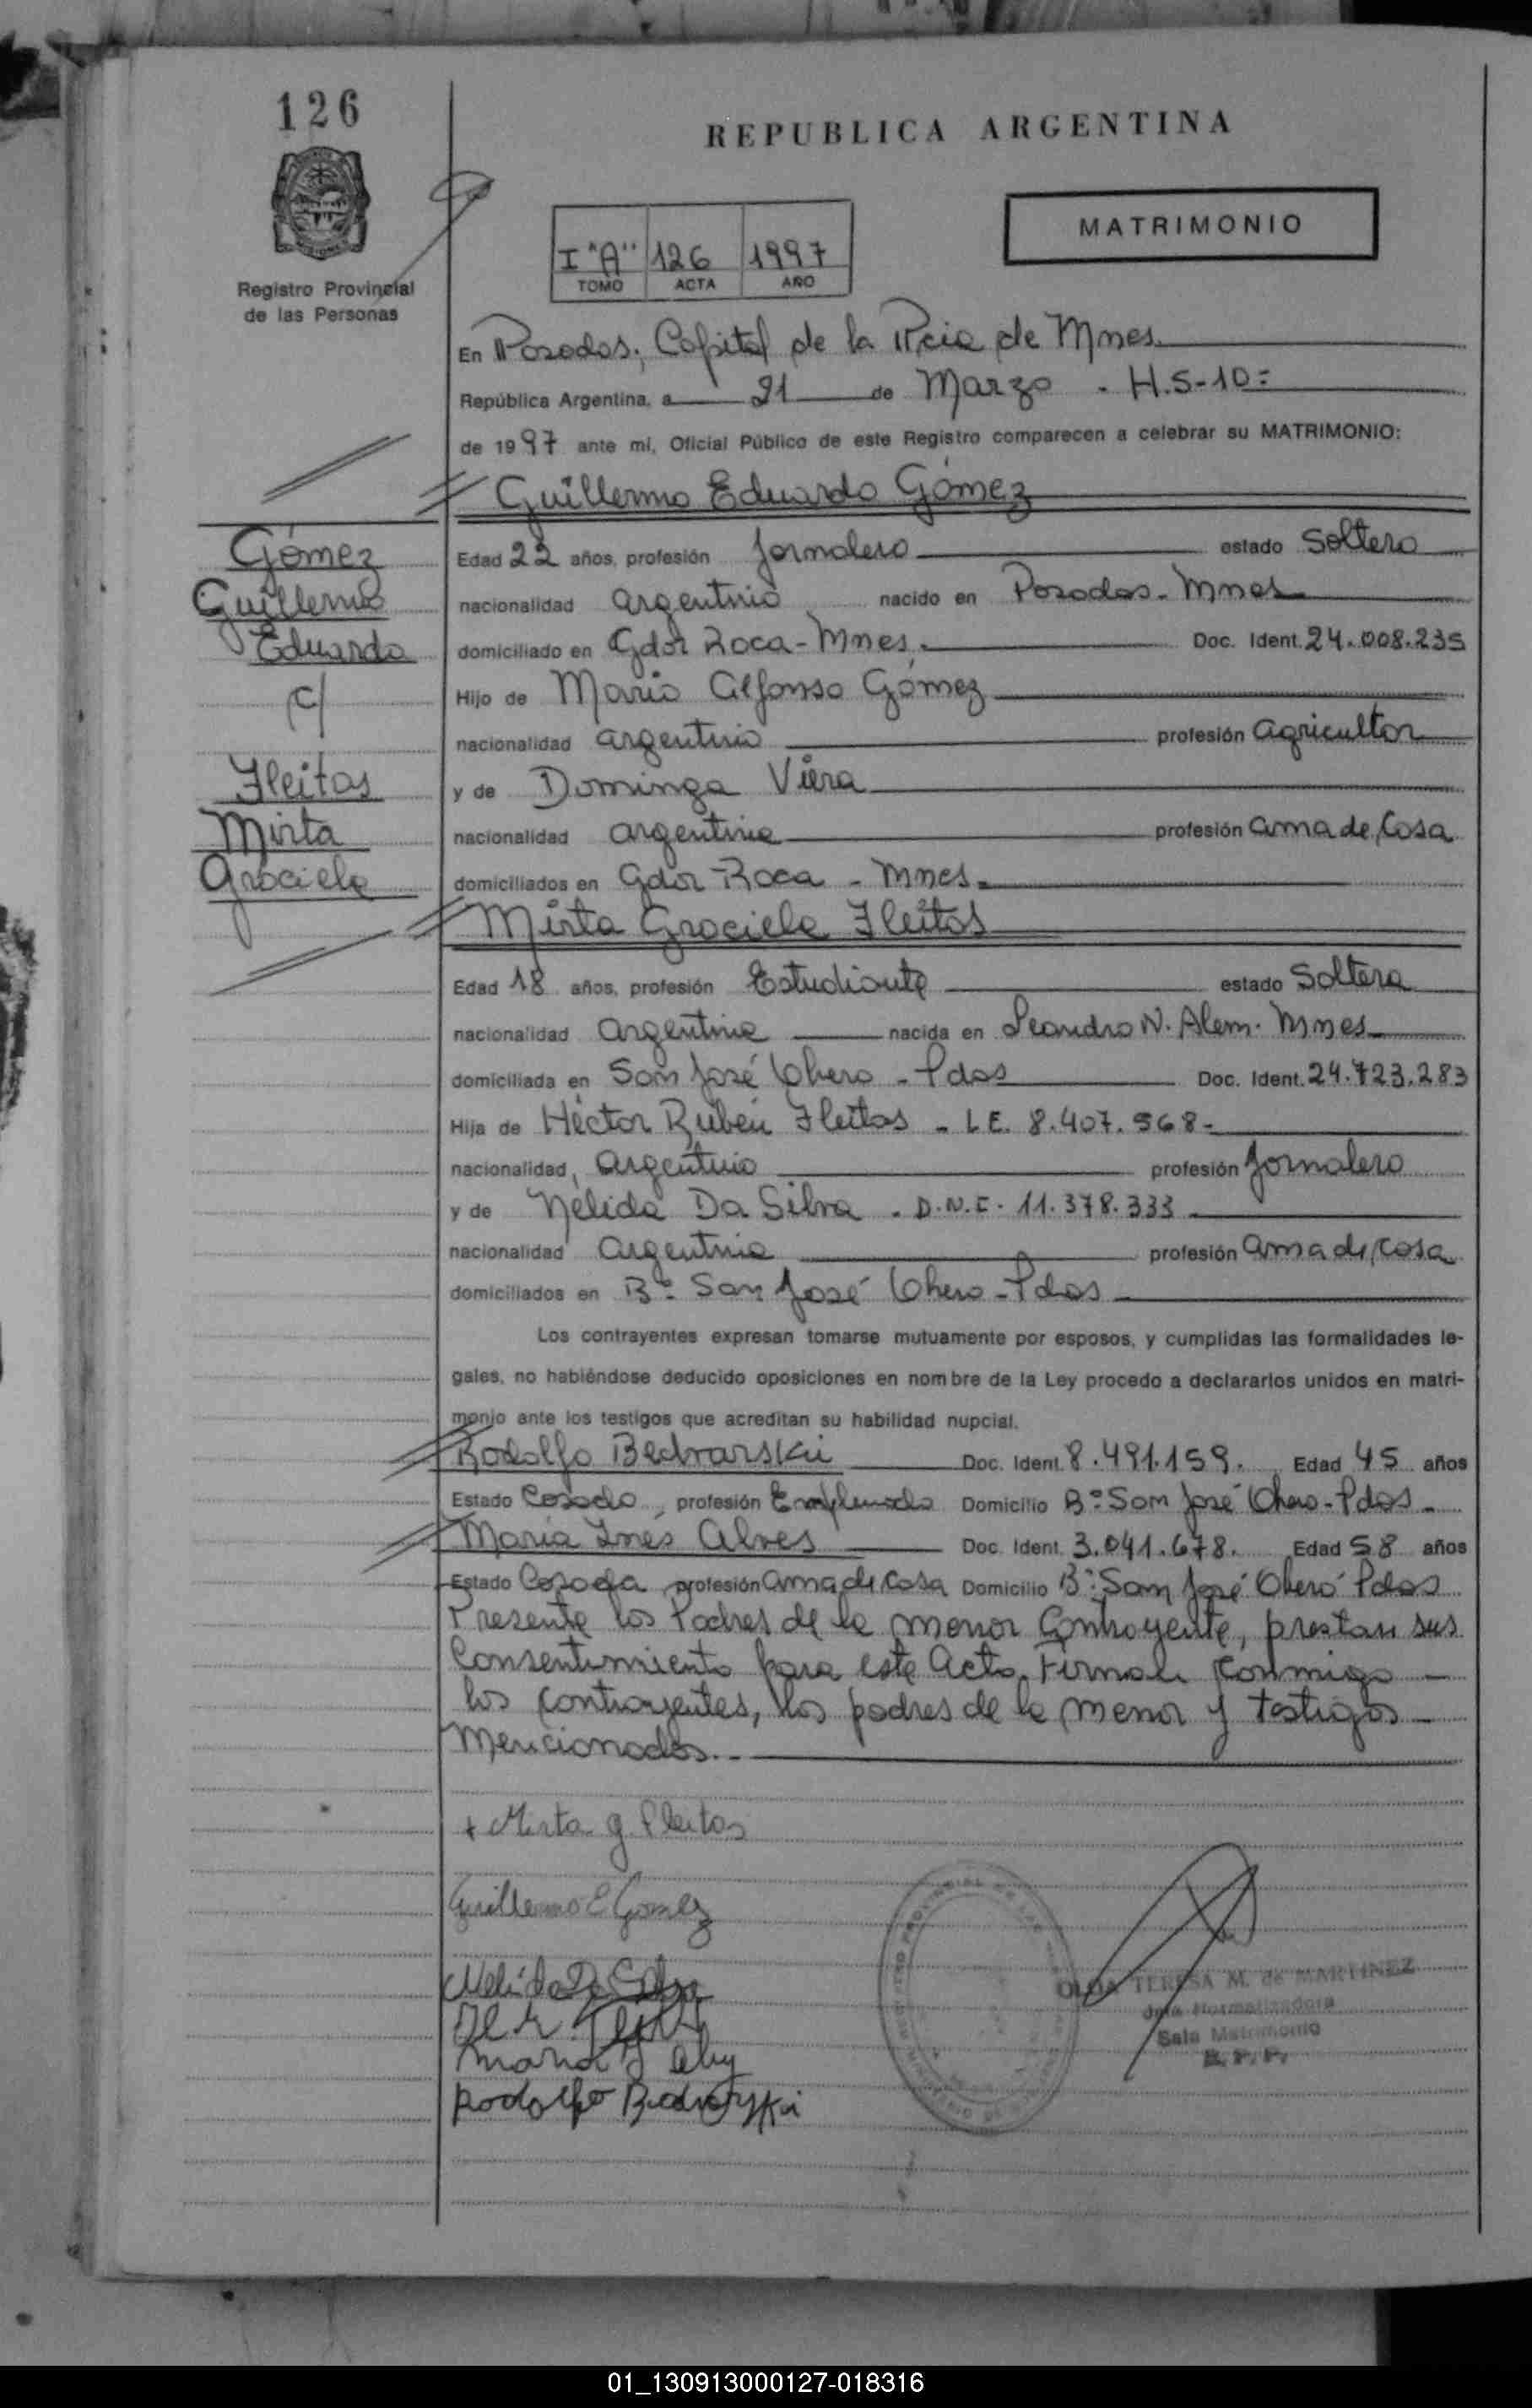 126
REPUBLICA ARGENTINA
MATRIMONIO
I "A" 126 1997
TOMO ACTA AÑO
Registro Provincial
de las Personas
En Posadas, Capital de la Pcia de Mnes.
República Argentina, a 21 de Marzo - H.S-10=
de 1997 ante mi, Oficial Público de este Registro comparecen a celebrar su MATRIMONIO:
Guillermo Eduardo Gómez
Gómez
Guillermo
Eduardo
c/
Fleitas
Mirta
Graciela
Edad 22 años, profesión Jornalero estado Soltero
nacionalidad argentino nacido en Posadas - Mnes
domiciliado en Gdor Roca - Mnes. Doc. Ident. 24.008.235
Hijo de Mario Alfonso Gómez
nacionalidad argentino profesión agricultor
y de Dominga Viera
nacionalidad argentina profesión ama de Casa
domiciliados en Gdor Roca - Mnes.
Mirta Graciela Fleitas
Edad 18 años, profesión Estudiante estado Soltera
nacionalidad argentina nacida en Leandro N. Alem - Mnes
domiciliada en San José Obrero - Pdas Doc. Ident. 24.723.283
Hija de Héctor Rubén Fleitas - L.E. 8.407.568-
nacionalidad, argentino profesión Jornalero
y de Nélida Da Silva - D.N.I - 11.378.333
nacionalidad Argentina profesión ama de casa
domiciliados en Bº San José Obrero - Pdas
Los contrayentes expresan tomarse mutuamente por esposos, y cumplidas las formalidades le-
gales, no habiéndose deducido oposiciones en nombre de la Ley procedo a declararlos unidos en matri-
monio ante los testigos que acreditan su habilidad nupcial.
Rodolfo Bednarski Doc. Ident. 8.491.159. Edad 45 años
Estado Casado, profesión Empleado Domicilio Bº San José Obrero - Pdas
María Inés Alves Doc. Ident. 3.041.678. Edad 58 años
Estado Casada profesión ama de casa Domicilio Bº San José Obrero Pdas
Presente los Padres de la menor Contrayente, prestan sus
Consentimiento para este Acto. Firman conmigo
los contrayentes, los padres de la menor y testigos
mencionados.-
+ Mirta g. fleitas
Guillermo E Gomez
Nelida Da Silva
Rodolfo Bednarski
OLGA TERESA M. de MARTINEZ
Jefa Normalizadora
Sala Matrimonio
R. P. P.
01_130913000127-018316